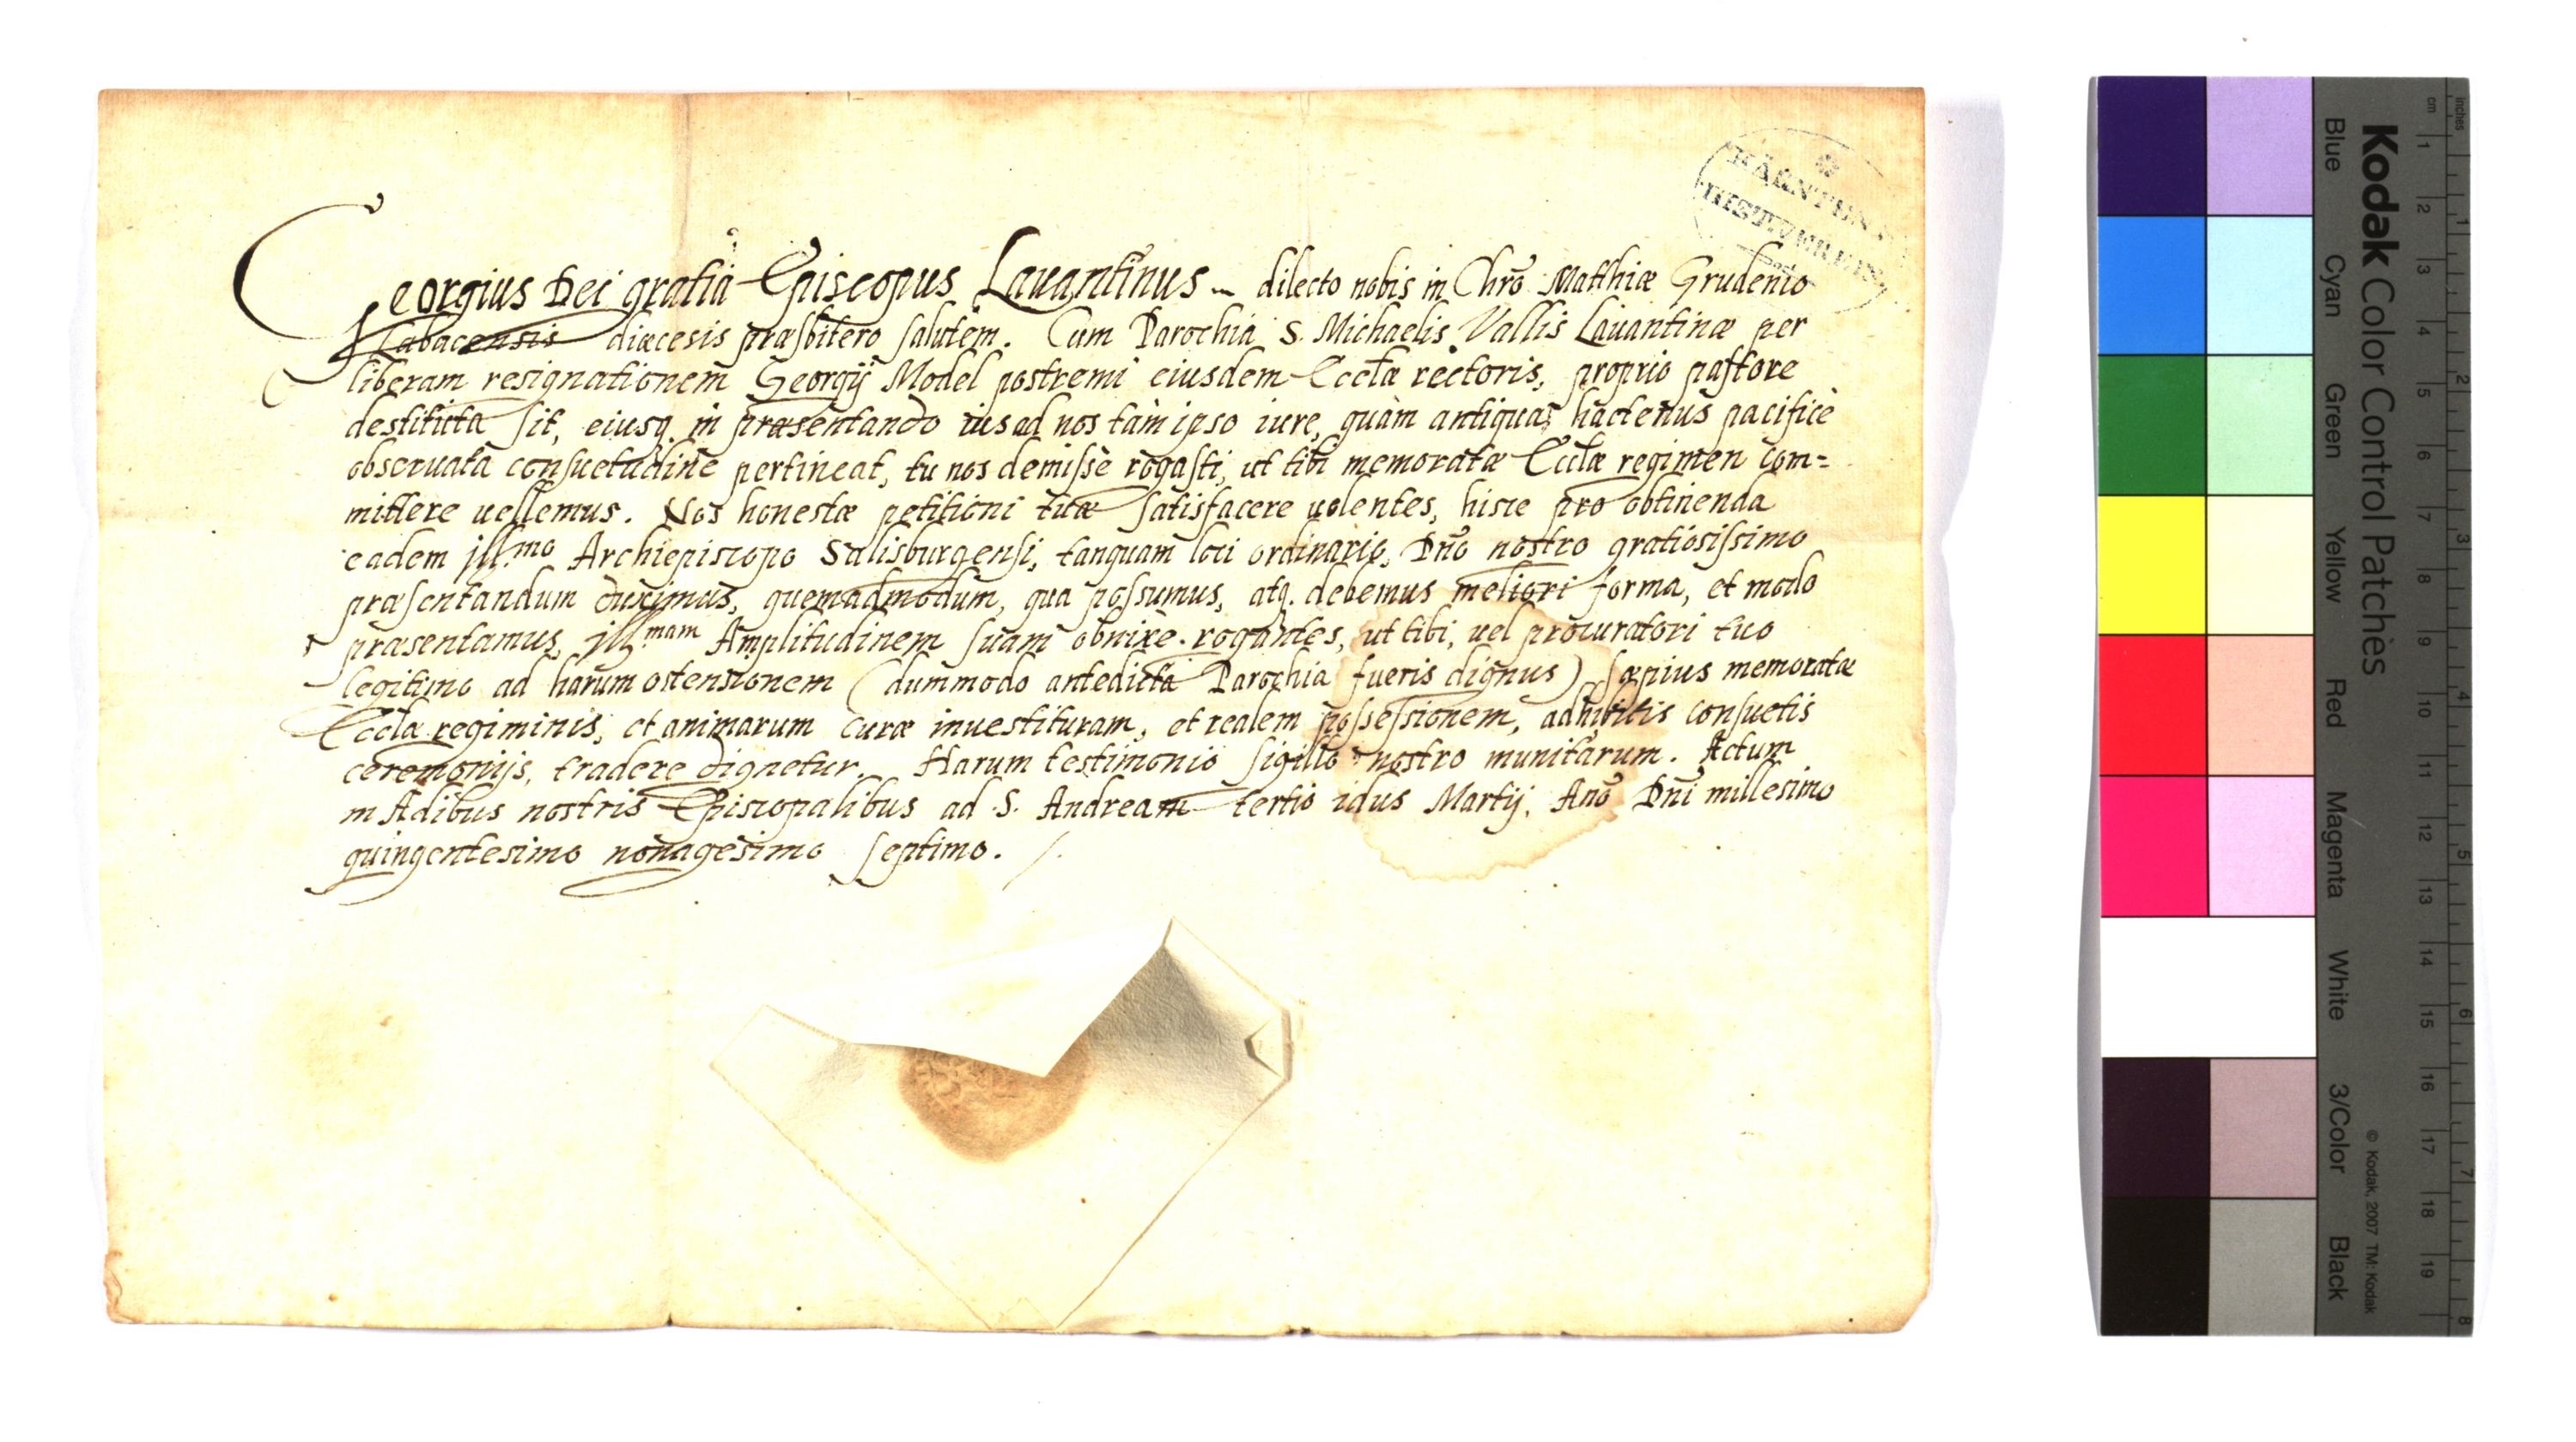 Georgius Dei gratia Episcopus Lavantinus dilecto nobis in Chrō Matthiæ Grudenio
Labacensis diæcesis præsbitero salutem. Cum Parochia S. Michaelis Vallis Lavantinæ per
liberam resignationem Georgij Model postremi eiusdem Ecclæ rectoris, proprio pastore
destituta sit, eiusq. in præsentando ius ad nos tàm ipso iure, quàm antiqua, hactenus pacificè
observata consuetudine pertineat, tu nos demissè rogasti, ut tibi memoratæ Ecclæ regimen com=
mittere uellemus. Nos honestæ petitioni tuæ satisfacere uolentes, hisce pro obtinenda
eadem Ill.mo Archiepiscopo Salisburgensi, tanquam loci ordinario, Dnō nostro gratiosissimo
præsentandum duximus, quemadmodum, qua possumus, atq. debemus meliori forma, et modo
præsentamus, Ill.mam Amplitudinem suam obnixe rogantes, ut tibi, uel procuratori tuo
legitimo ad harum ostensionem (dummodo antedicta Parochia fueris dignus) sæpius memoratæ
Ecclæ regiminis, et animarum curæ inuestituram, et realem possessionem, adhibitis consuetis
ceremonijs, tradere dignetur. Harum testimonio sigillo nostro munitarum. Actum
in Ædibus nostris Episcopalibus ad S. Andream tertio idus Martij. Anō Dnī millesimo
quingentesimo nonagesimo septimo.
KÄRNTEN
Kodak Color Control Patches
© Kodak, 2007 TM: Kodak
Blue Cyan Green Yellow Red Magenta White 3/Color Black
cm 1 2 3 4 5 6 7 8 9 10 11 12 13 14 15 16 17 18 19
Inches 1 2 3 4 5 6 7 8